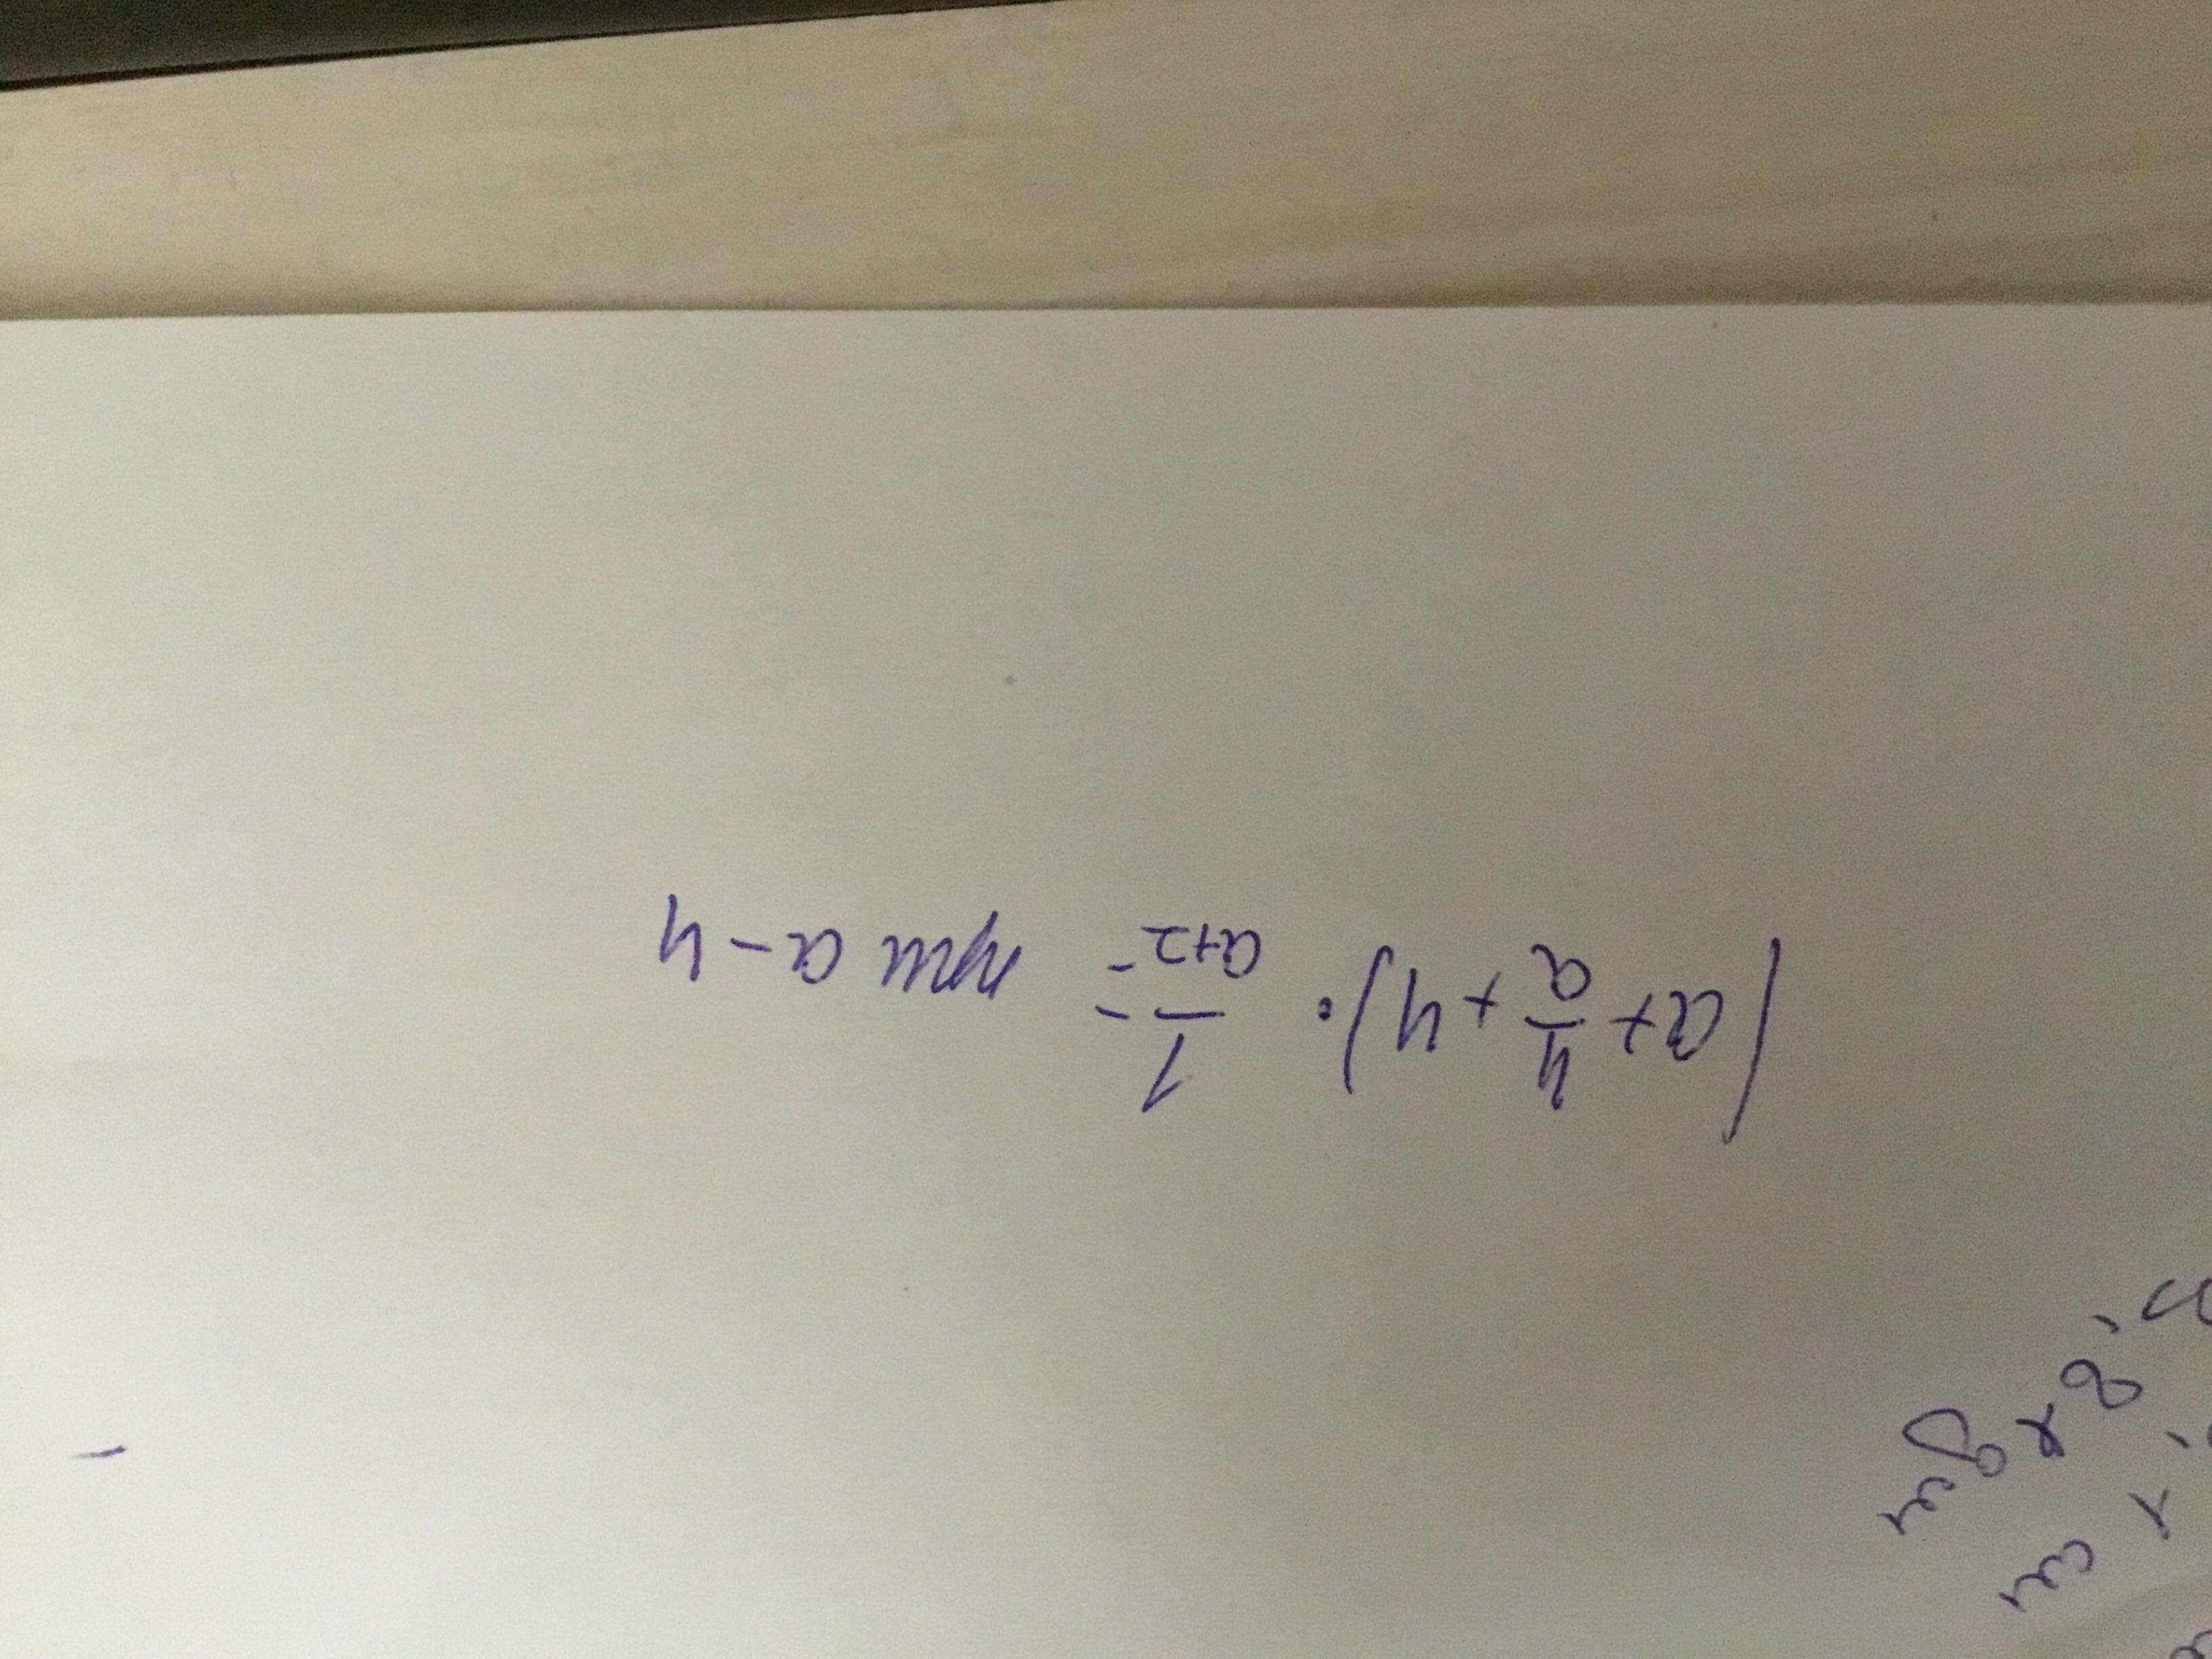 (a + 4/a + 4) · 1/a+2 = при a - 4